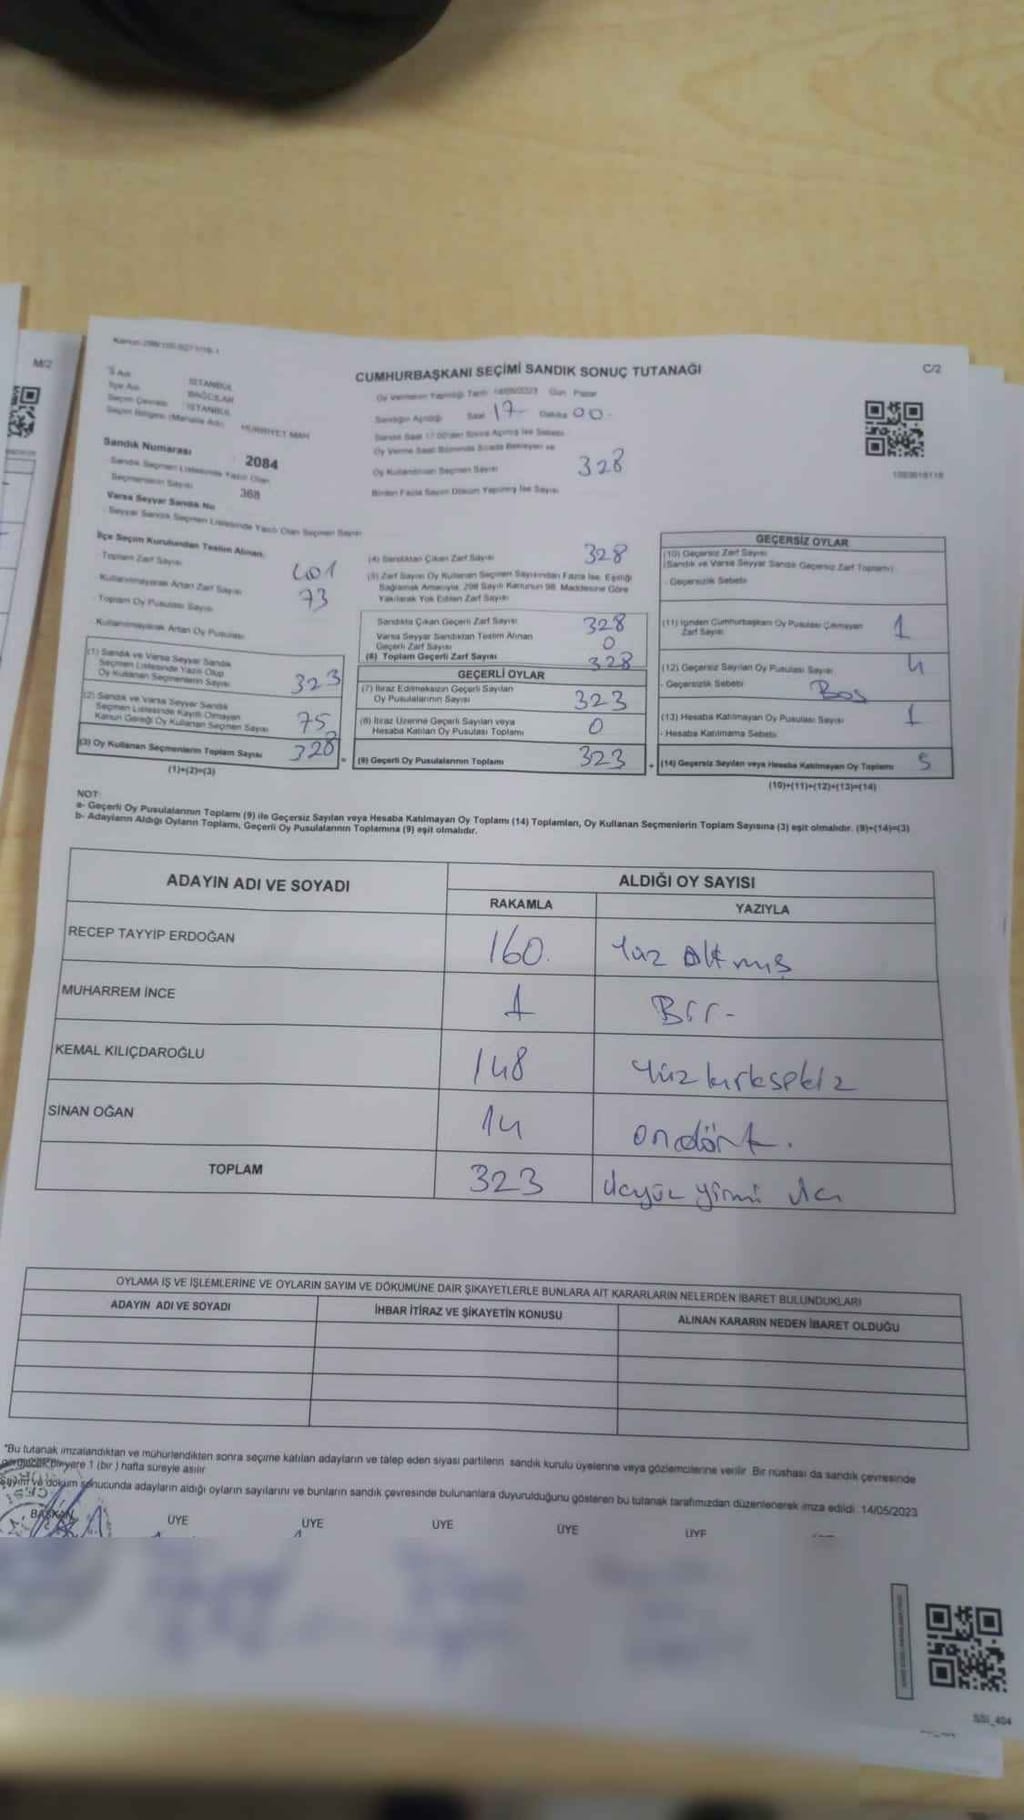 M/2
C/2
CUMHURBAŞKANI SEÇİMİ SANDIK SONUÇ TUTANAĞI
İl Adı İSTANBUL
İlçe Adı BAĞCILAR
Seçim Çevresi İSTANBUL
Seçim Bölgesi (Mahalle Adı) HÜRRİYET MAH
Sandık Numarası 2084
Sandık Seçmen Listesinde Yazılı Olan
Seçmenlerin Sayısı 368
Varsa Seyyar Sandık No
Seyyar Sandık Seçmen Listesinde Yazılı Olan Seçmen Sayısı
Oy Vermenin Yapıldığı Tarih 14/05/2023 Gün Pazar
Sandığın Açıldığı Saat 17 Dakika 00
Sandık Saat 17.00'den Sonra Açılmış İse Sebebi
Oy Verme Saati Bitiminde Sırada Bekleyen ve
Oy Kullandırılan Seçmen Sayısı 328
Birden Fazla Sayım Döküm Yapılmış İse Sayısı
İlçe Seçim Kurulundan Teslim Alınan:
Toplam Zarf Sayısı 401
Kullanılmayarak Artan Zarf Sayısı 73
Toplam Oy Pusulası Sayısı
Kullanılmayarak Artan Oy Pusulası
(1) Sandık ve Varsa Seyyar Sandık
Seçmen Listesinde Yazılı Olup
Oy Kullanan Seçmenlerin Sayısı 323
(2) Sandık ve Varsa Seyyar Sandık
Seçmen Listesinde Kayıtlı Olmayan
Kanun Gereği Oy Kullanan Seçmen Sayısı 75
(3) Oy Kullanan Seçmenlerin Toplam Sayısı 328
(1)+(2)=(3)
(4) Sandıktan Çıkan Zarf Sayısı 328
(5) Zarf Sayısı Oy Kullanan Seçmen Sayısından Fazla İse, Eşitliği
Sağlamak Amacıyla, 298 Sayılı Kanunun 98. Maddesine Göre
Yakılarak Yok Edilen Zarf Sayısı
Sandıkta Çıkan Geçerli Zarf Sayısı 328
Varsa Seyyar Sandıktan Teslim Alınan
Geçerli Zarf Sayısı 0
(6) Toplam Geçerli Zarf Sayısı 328
GEÇERLİ OYLAR
(7) İtiraz Edilmeksizin Geçerli Sayılan
Oy Pusulalarının Sayısı 323
(8) İtiraz Üzerine Geçerli Sayılan veya
Hesaba Katılan Oy Pusulası Toplamı 0
(9) Geçerli Oy Pusulalarının Toplamı 323
GEÇERSİZ OYLAR
(10) Geçersiz Zarf Sayısı
(Sandık ve Varsa Seyyar Sandık Geçersiz Zarf Toplamı)
- Geçersizlik Sebebi
(11) İçinden Cumhurbaşkanı Oy Pusulası Çıkmayan
Zarf Sayısı 1
(12) Geçersiz Sayılan Oy Pusulası Sayısı 4
- Geçersizlik Sebebi Boş
(13) Hesaba Katılmayan Oy Pusulası Sayısı 1
- Hesaba Katılmama Sebebi
(14) Geçersiz Sayılan veya Hesaba Katılmayan Oy Toplamı 5
(10)+(11)+(12)+(13)=(14)
NOT:
a- Geçerli Oy Pusulalarının Toplamı (9) ile Geçersiz Sayılan veya Hesaba Katılmayan Oy Toplamı (14) Toplamları, Oy Kullanan Seçmenlerin Toplam Sayısına (3) eşit olmalıdır. (9)+(14)=(3)
b- Adayların Aldığı Oyların Toplamı, Geçerli Oy Pusulalarının Toplamına (9) eşit olmalıdır.
ADAYIN ADI VE SOYADI ALDIĞI OY SAYISI
RAKAMLA YAZIYLA
RECEP TAYYİP ERDOĞAN 160. Yüz Altmış
MUHARREM İNCE 1 Bir-
KEMAL KILIÇDAROĞLU 148 Yüz kırksekiz
SİNAN OĞAN 14 ondört.
TOPLAM 323 üçyüz yirmi üç
OYLAMA İŞ VE İŞLEMLERİNE VE OYLARIN SAYIM VE DÖKÜMÜNE DAİR ŞİKAYETLERLE BUNLARA AİT KARARLARIN NELERDEN İBARET BULUNDUKLARI
ADAYIN ADI VE SOYADI İHBAR İTİRAZ VE ŞİKAYETİN KONUSU ALINAN KARARIN NEDEN İBARET OLDUĞU
*Bu tutanak imzalandıktan ve mühürlendikten sonra seçime katılan adayların ve talep eden siyasi partilerin sandık kurulu üyelerine veya gözlemcilerine verilir. Bir nüshası da sandık çevresinde
yere 1 (bir) hafta süreyle asılır
Sayım ve döküm sonucunda adayların aldığı oyların sayılarını ve bunların sandık çevresinde bulunanlara duyurulduğunu gösteren bu tutanak tarafımızdan düzenlenerek imza edildi. 14/05/2023
BAŞKAN ÜYE ÜYE ÜYE ÜYE ÜYE